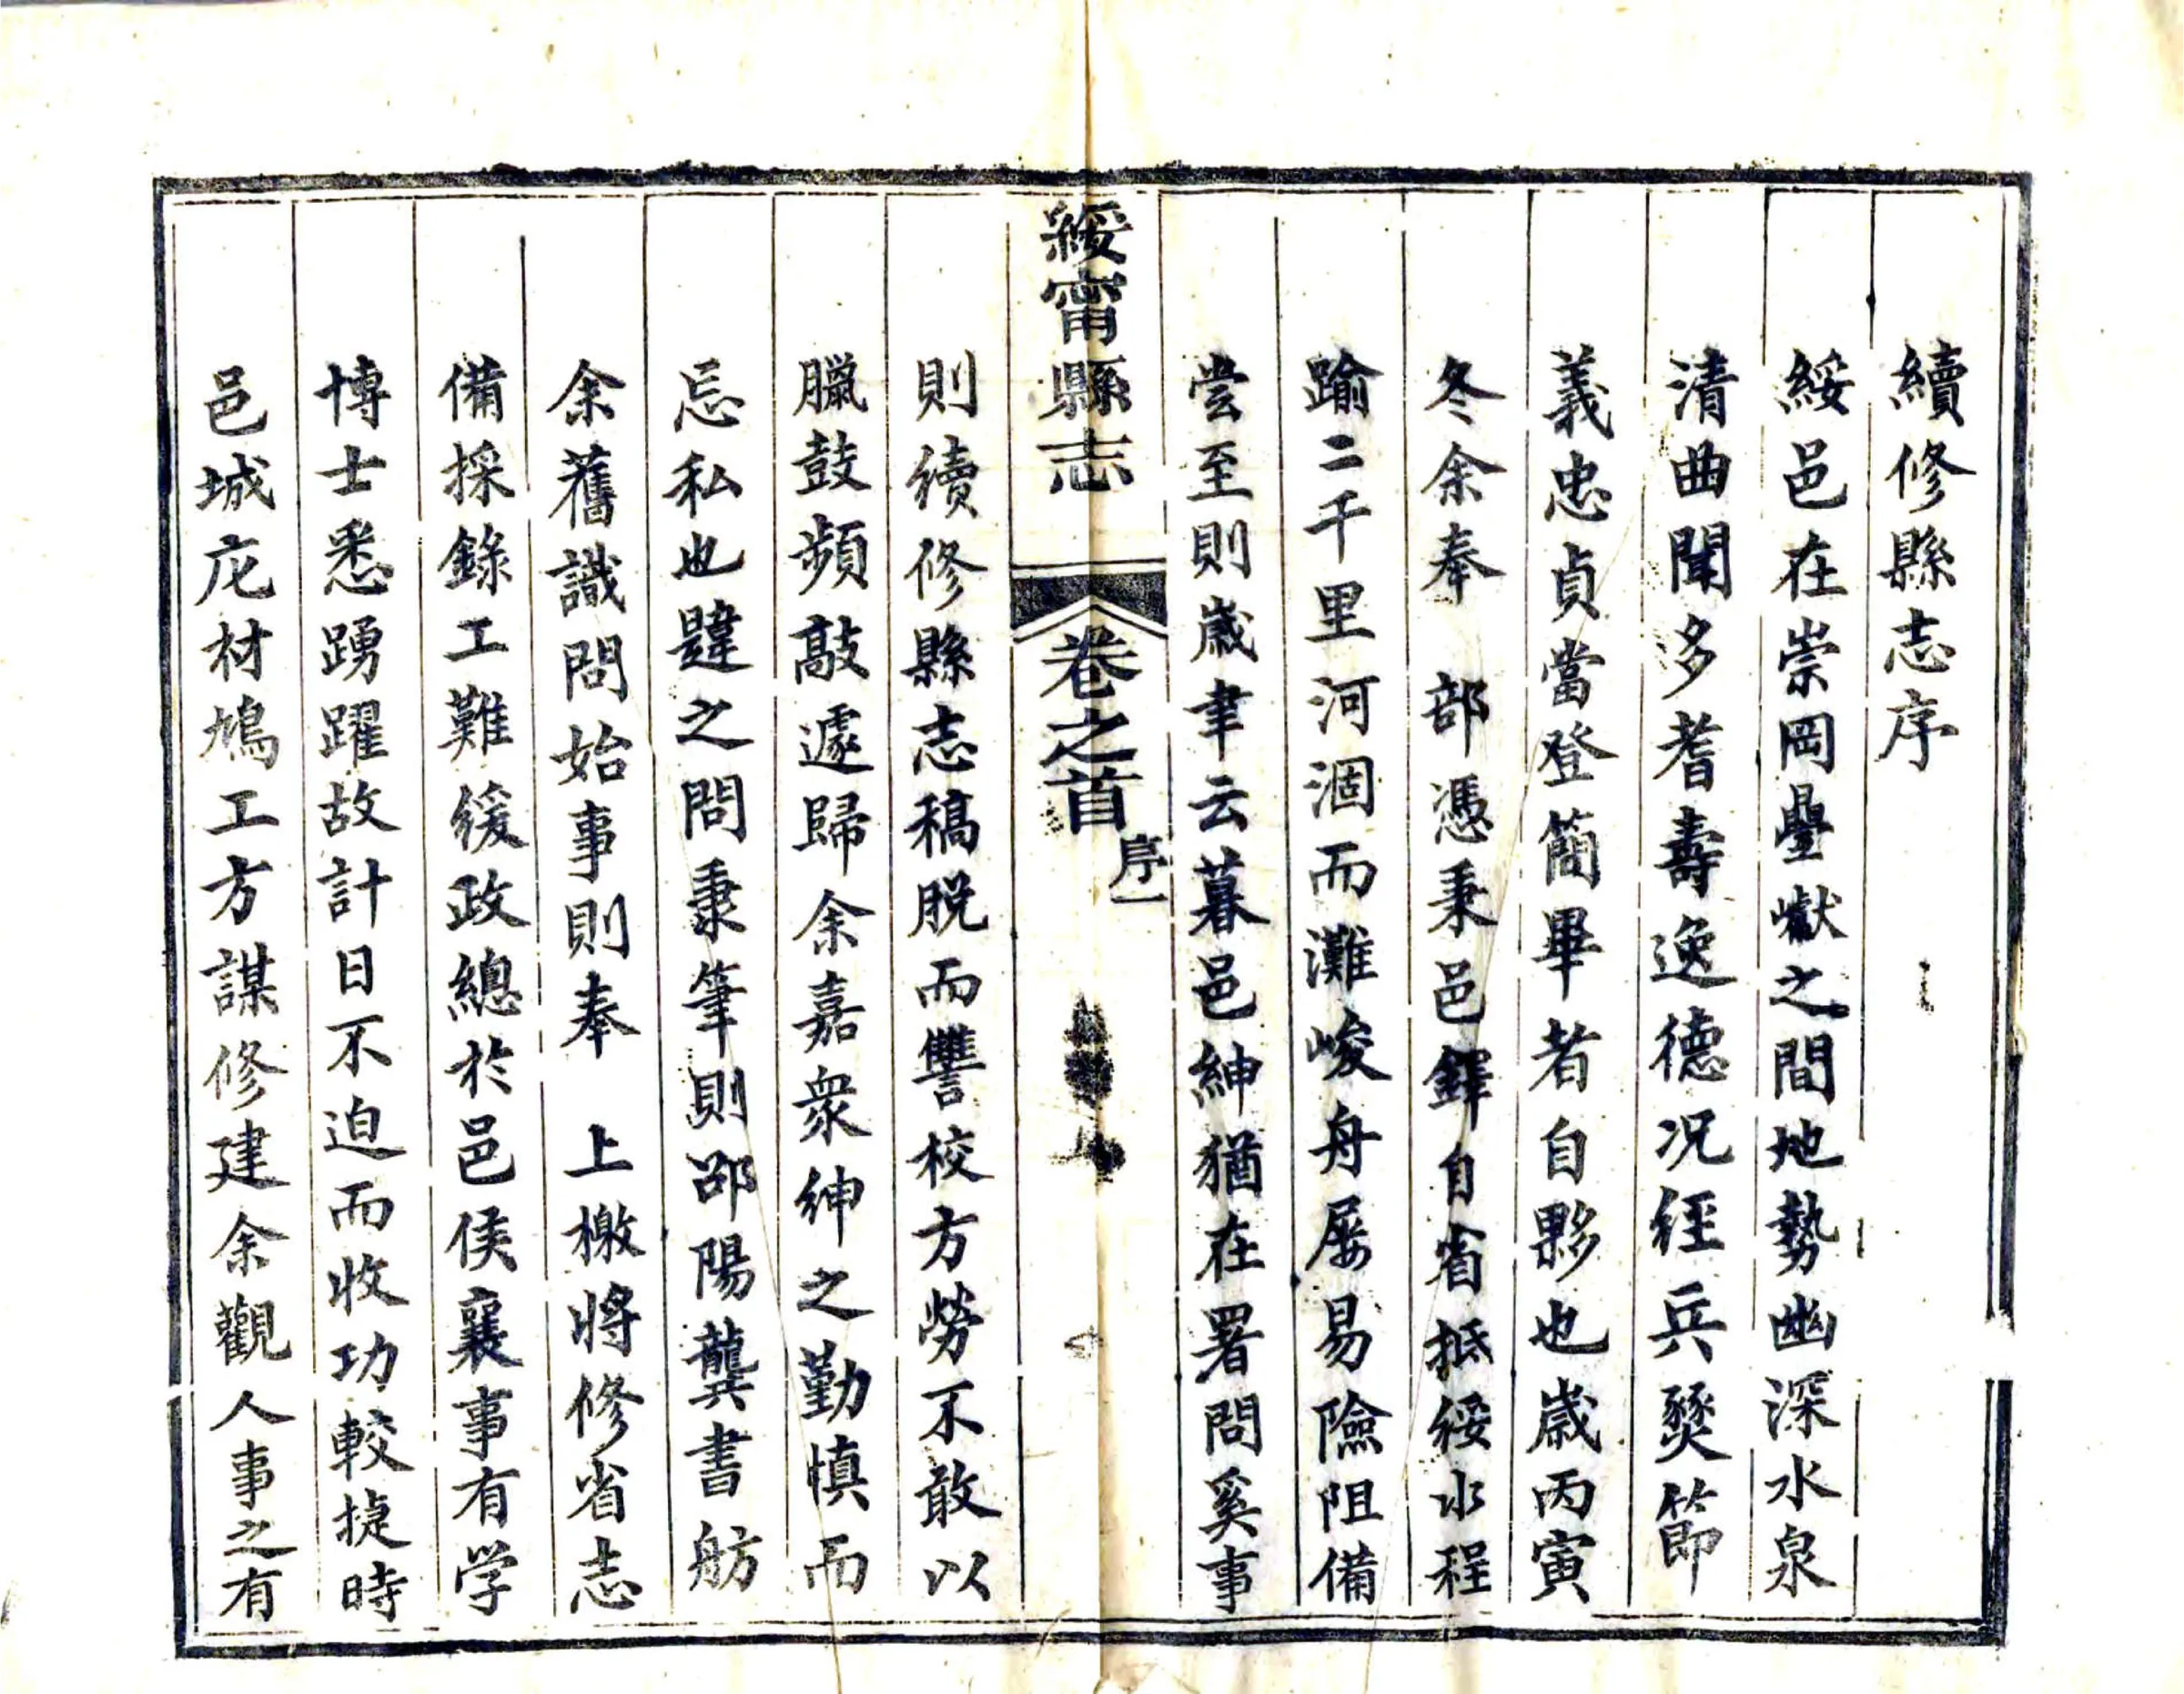 續修縣志序
綏邑在崇岡疊巘之間地勢幽深水泉
清曲聞多耆壽逸德况經兵燹節
義忠貞當登簡畢者自夥也歲丙寅
冬余奉 部憑秉邑鐸自省抵綏水程
踰二千里河涸而灘峻舟屡易險阻備
嘗至則歲聿云暮邑紳猶在署問奚事
綏甯縣志 卷之首 序一
則續修縣志稿脱而讐校方勞不敢以
臘鼓頻敲遽歸余嘉衆紳之勤慎而
忘私也韙之問秉筆則邵陽龔書舫
余舊識問始事則奉 上檄將修省志
備採錄工難緩政總於邑侯襄事有学
博士悉踴躍故計日不迫而收功較捷時
邑城庀材鳩工方謀修建余觀人事之有